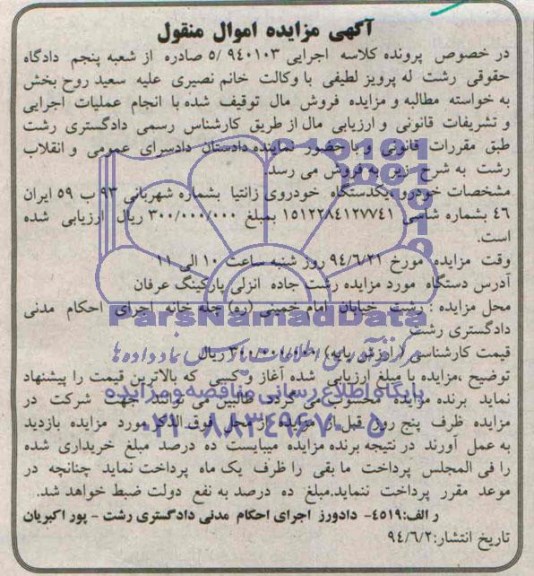 آگهی مزایده اموال منقول
در خصوص پرونده کلاسه اجرایی ۹۴۰۱۰۳ /۵ صادره از شعبه پنجم دادگاه
حقوقی رشت له پرویز لطیفی با وکالت خانم نصیری علیه سعید روح بخش
به خواسته مطالبه و مزایده فروش مال توقیف شده با انجام عملیات اجرایی
و تشریفات قانونی و ارزیابی مال از طریق کارشناس رسمی دادگستری رشت
طبق مقررات قانونی و با حضور نماینده دادستان دادسرای عمومی و انقلاب
رشت به شرح زیر به فروش می رسد.
مشخصات خودرو: یکدستگاه خودروی زانتیا بشماره شهربانی ۹۳ ب ۵۹ ایران
۴۶ بشماره شاسی ۱۵۱۲۲۸۴۱۲۷۷۴۱ بمبلغ ۳۰۰/۰۰۰/۰۰۰ ریال ارزیابی شده
است.
وقت مزایده مورخ ۹۴/۶/۲۱ روز شنبه ساعت ۱۰ الی ۱۱
آدرس دستگاه مورد مزایده رشت جاده انزلی پارکینگ عرفان
محل مزایده : رشت خیابان امام خمینی (ره) چله خانه اجرای احکام مدنی
دادگستری رشت
ParsNamadData
قیمت کارشناسی (ارزش پایه) ریال
مرکز فرآوری اطلاعات پارس نماد داده‌ها
توضیح ،مزایده با مبلغ ارزیابی شده آغاز و کسی که بالاترین قیمت را پیشنهاد
نماید برنده مزایده محسوب می گردد طالبین می توانند جهت شرکت در
پایگاه اطلاع رسانی مناقصه و مزایده
مزایده ظرف پنج روز قبل از مزایده از محل فوق الذکر مورد مزایده بازدید
۰۲۱-۸۸۳۴۹۶۷۰-۵
به عمل آورند در نتیجه برنده مزایده میبایست ده درصد مبلغ خریداری شده
را فی المجلس پرداخت ما بقی را ظرف یک ماه پرداخت نماید چنانچه در
موعد مقرر پرداخت ننماید.مبلغ ده درصد به نفع دولت ضبط خواهد شد.
ر الف:۴۵۱۹- دادورز اجرای احکام مدنی دادگستری رشت - پور اکبریان
تاریخ انتشار:۹۴/۶/۲